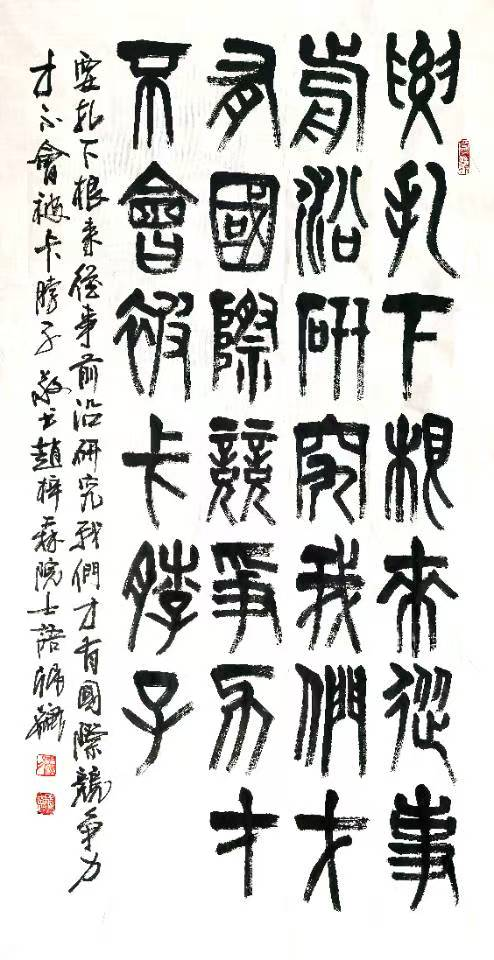 要扎下根来從事
前沿研究我們才
有國際競爭力才
不會被卡脖子
要扎下根来從事前沿研究我們才有國際競爭力
才不會被卡脖子 敬书趙梓森院士語